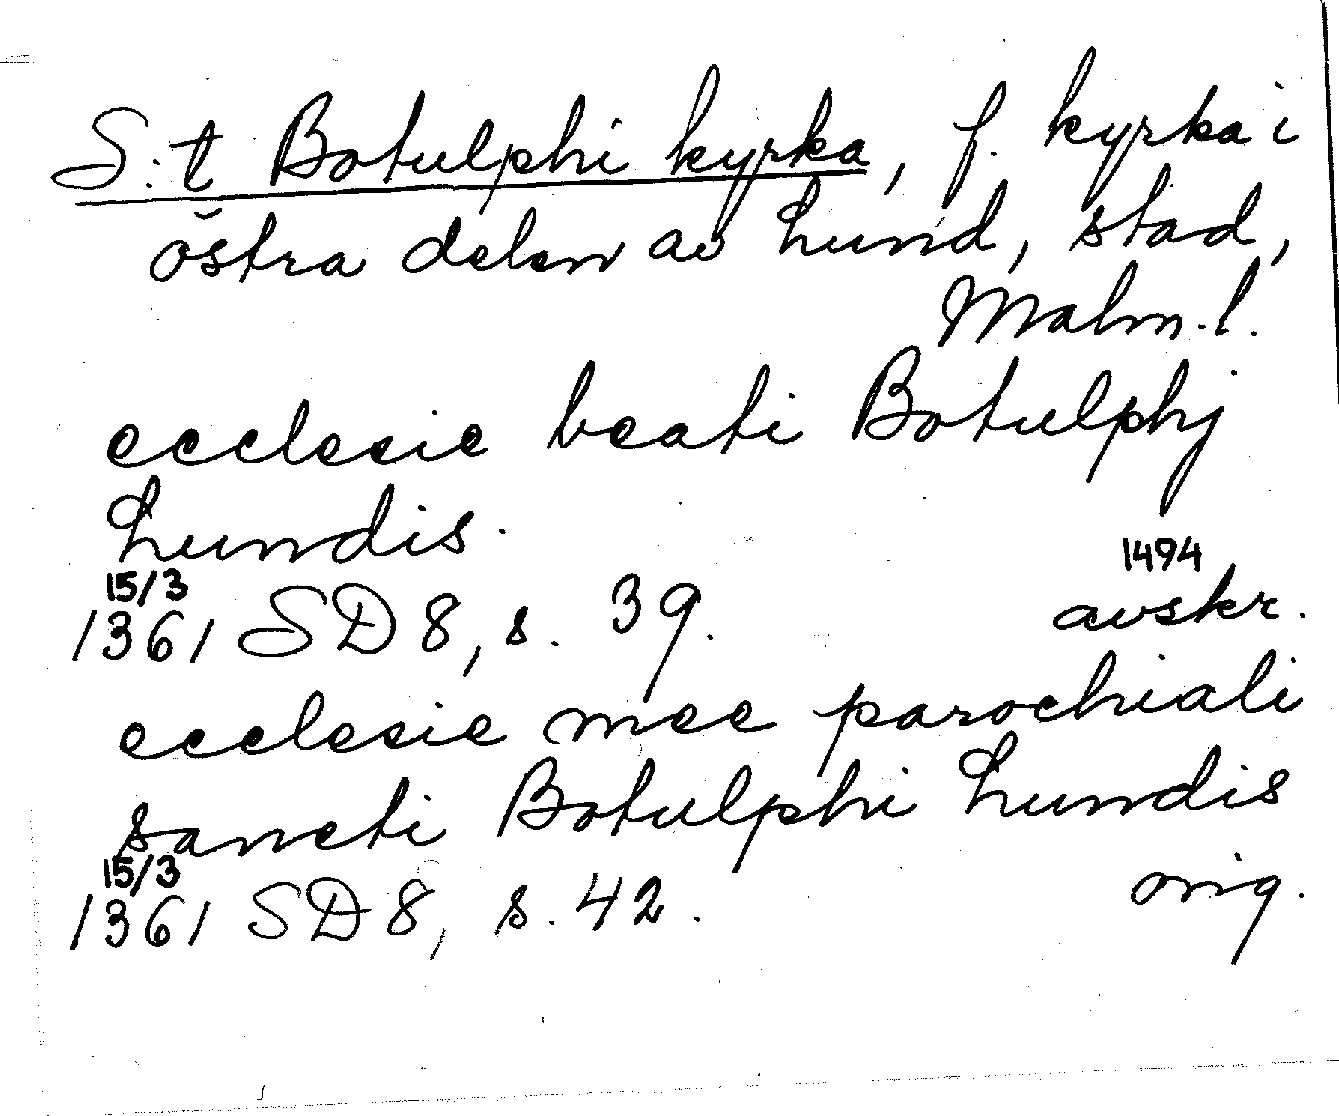 S:t Botulphi kyrka, f. kyrka i
östra delen av Lund, stad,
Malm.l.
ecclesie beati Botulphj
Lundis.
15/3 1494
1361 SD 8, s. 39. avskr.
ecclesie mee parochiali
sancti Botulphi Lundis
15/3
1361 SD 8, s. 42. orig.